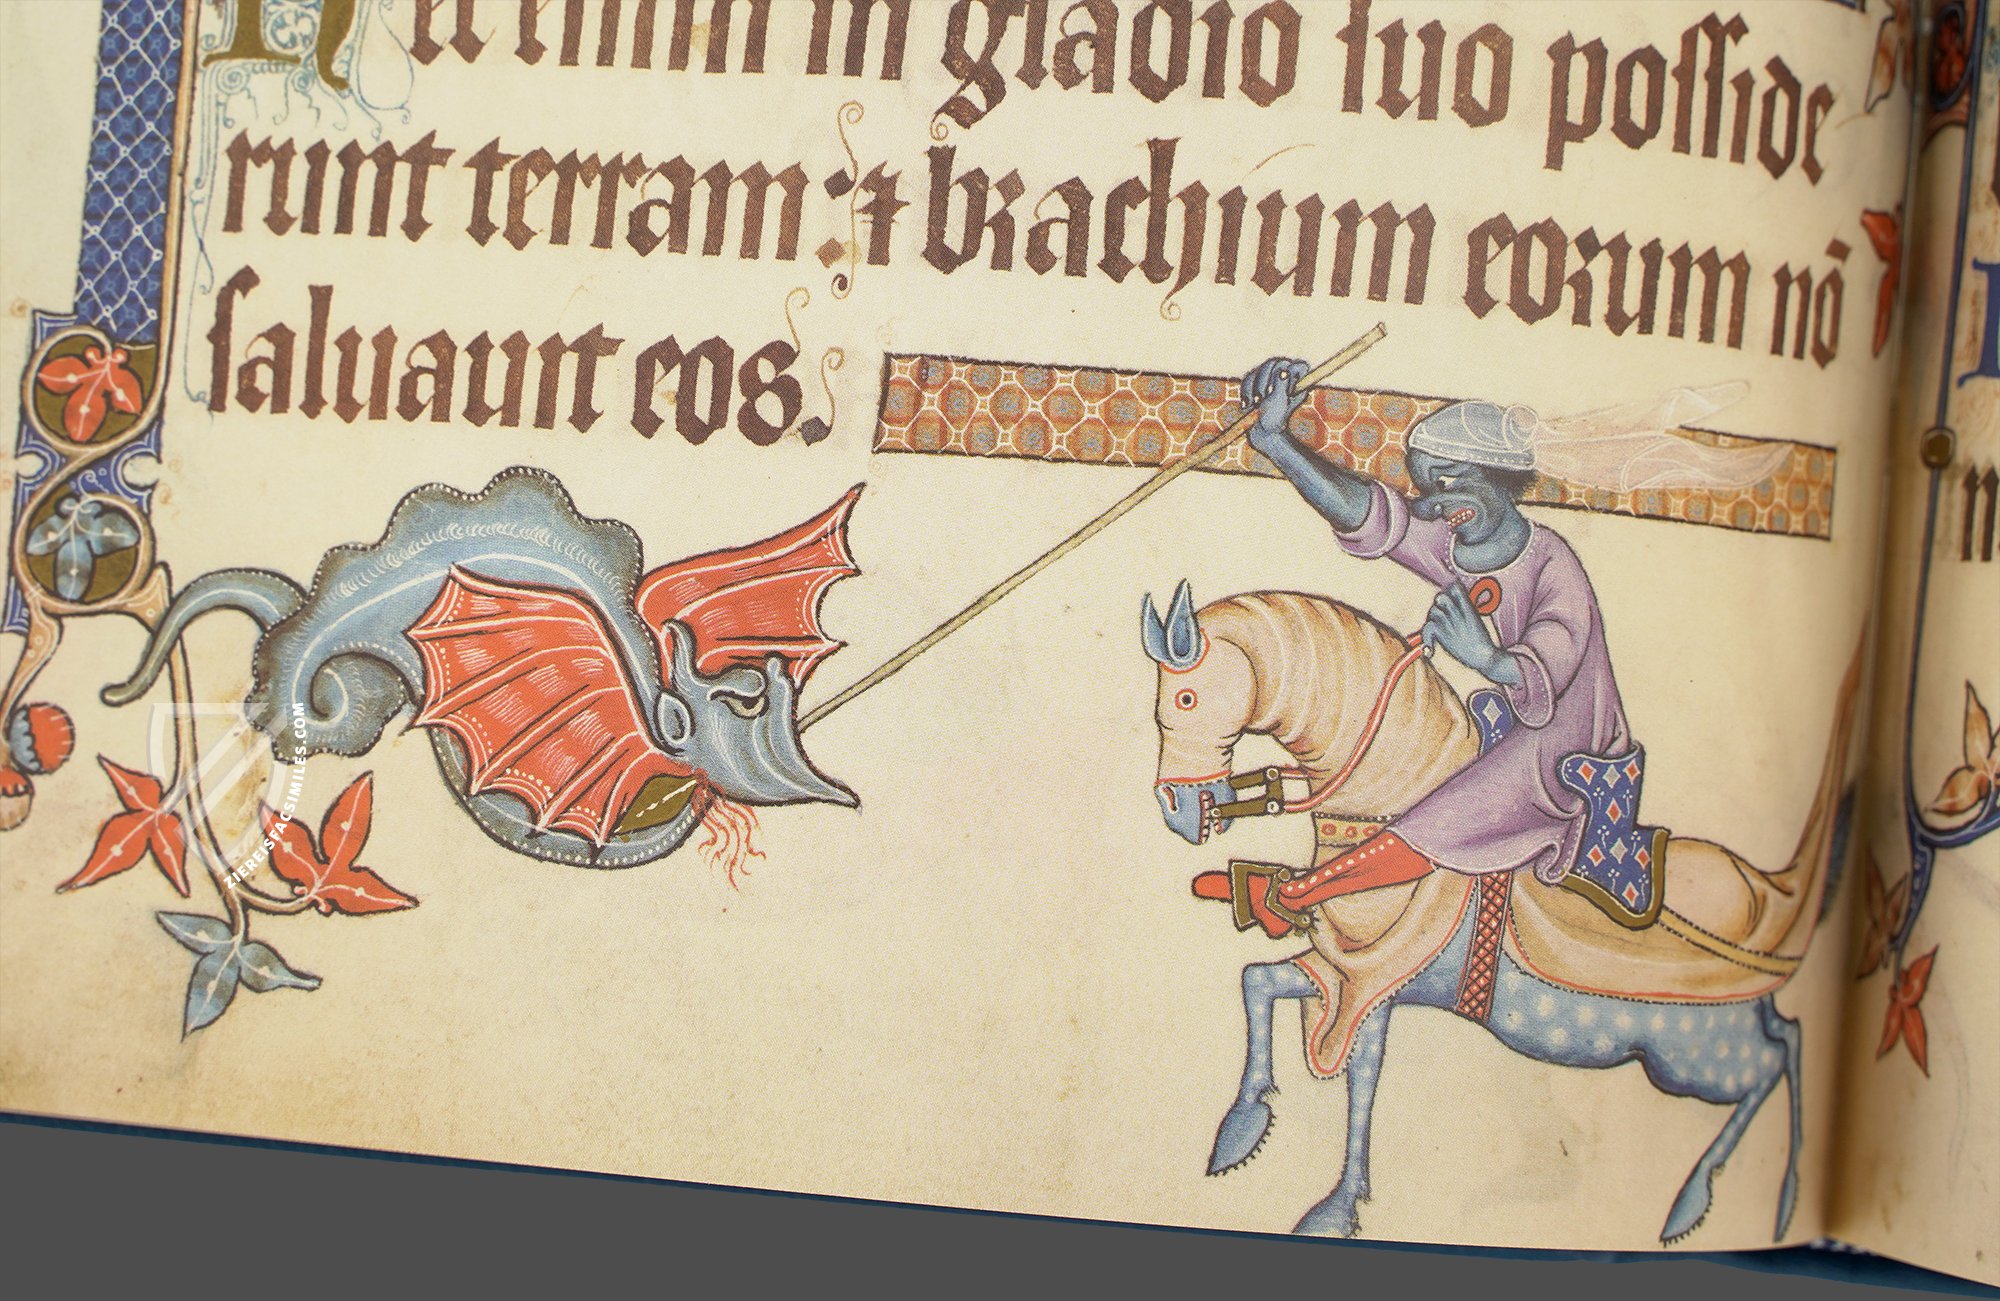 Nec enim in gladio suo posside
runt terram: ⁊ brachium eorum nō
saluauit eos.
ZIEREISFACSIMILES.COM